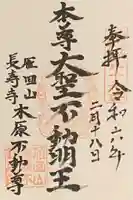 奉拝
令和六年
二月十八日
本尊大聖不動明王
厄四山
長寿寺
木原不動尊